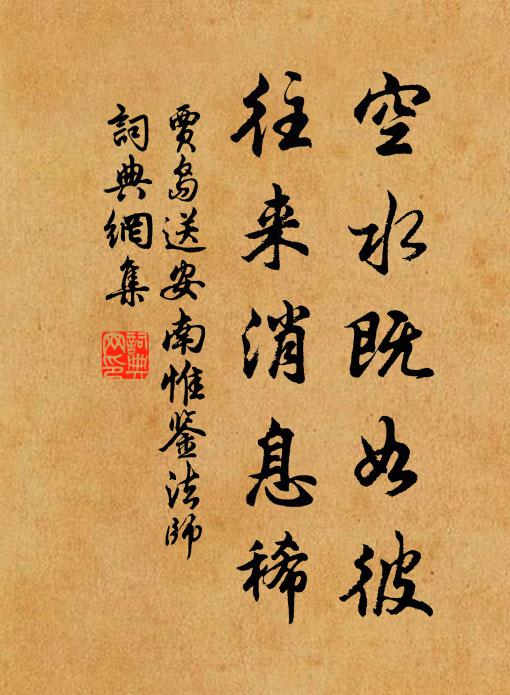 空水既如彼
往来消息稀
賈島送安南惟鉴法師
詞典網集
詞典
网印